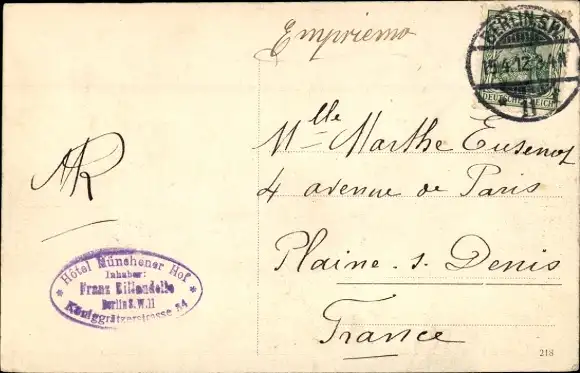 BERLIN S.W.
15.4.12.3-4N
* 11 f
DEUTSCHES REICH
Mlle Marthe Eusenot
4 avenue de Paris
Plaine . s . Denis
France
218
Hôtel Münchener Hof
Inhaber:
Franz
Berlin S.W.11
* Königgrätzerstrasse 34 *